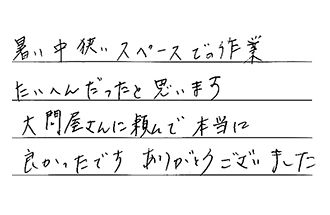 暑い中狭いスペースでの作業
たいへんだったと思います
大問屋さんに頼んで本当に
良かったです ありがとうございました